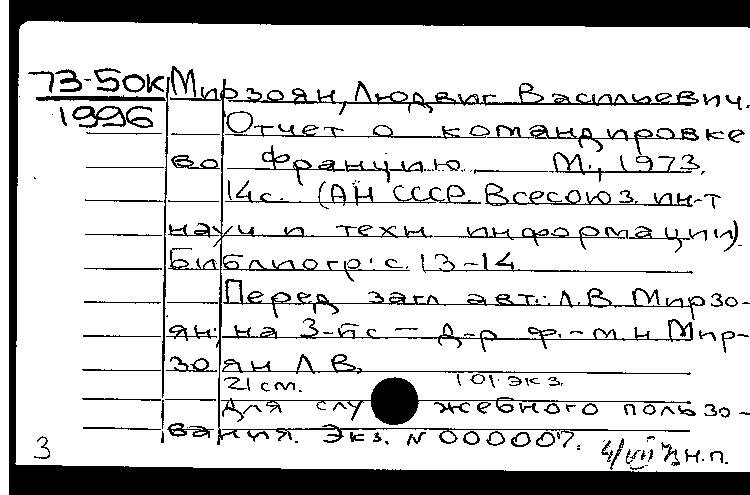 73-50К Мирзоян, Людвиг Васильевич.
1996 Отчет о командировке
во Францию М., 1973.
14 с. (АН СССР. Всесоюз. ин-т
науч и техн информации)
Библиогр: с. 13-14
Перед загл авт.: Л.В. Мирзо-
ян; на 3-й с — д-р ф.-м.н Мир-
зоян Л.В.
21 см. 101 экз
Для служебного пользо-
вания. Экз. N 000007.
3 4/VII н.п.